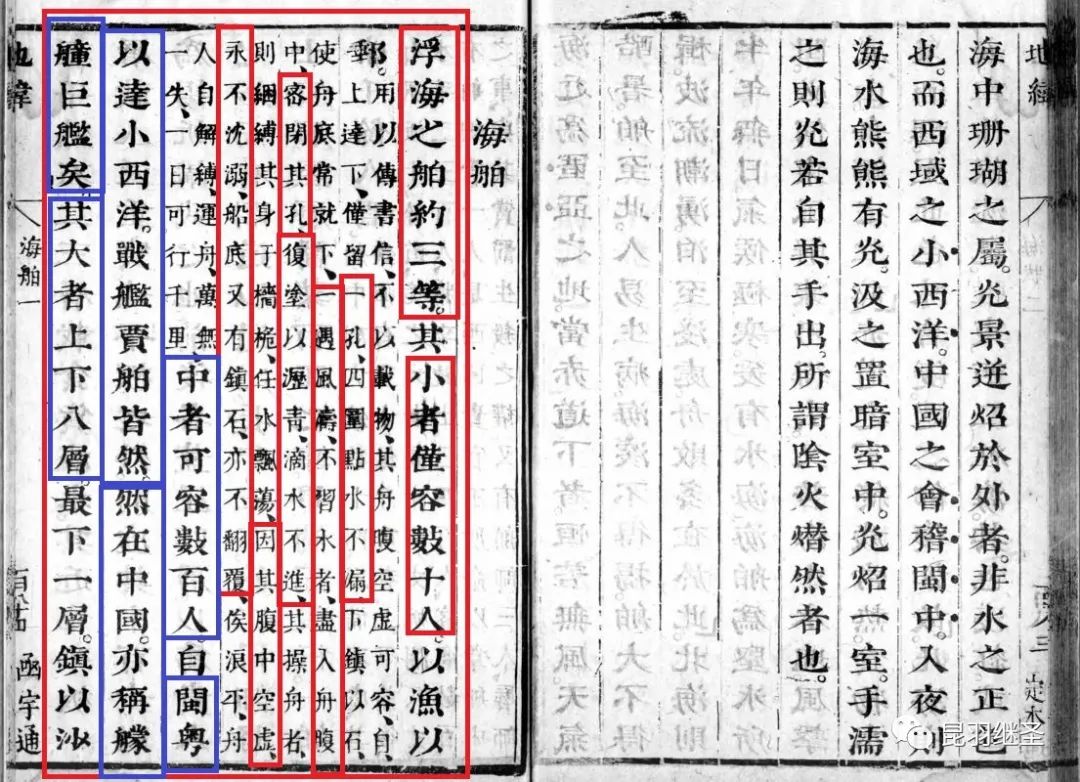 地緯
海中珊瑚之屬。光景迸炤於外者。非水之正色
也。而西域之小西洋。中國之會稽閩中。入夜則
海水熊熊有光。汲之置暗室中。光炤一室。手濡
之則光若自其手出。所謂陰火熸然者也。
海舶
浮海之舶約三等。其小者僅容數十人。以漁以
郵。用以傳書信、不以載物、其舟腹空虛可容、自
上達下、僅留一孔、四圍點水不漏、下鎮以石
使舟底常就下、一遇風濤、不習水者、盡入舟腹
中、密閉其孔、復塗以瀝青、滴水不進、其操舟者、
則綑縛其身于檣桅、任水飄蕩、因其腹中空虛、
永不沈溺、船底又有鎮石、亦不翻覆、俟浪平、舟
人自解縛、運舟、萬無
一失、一日可行千里
中者可容數百人。自閩粵
以達小西洋。戰艦賈舶皆然。然在中國。亦稱艨
艟巨艦矣。其大者上下八層。最下一層。鎮以沙
地緯
海舶一
函宇通
昆羽继圣